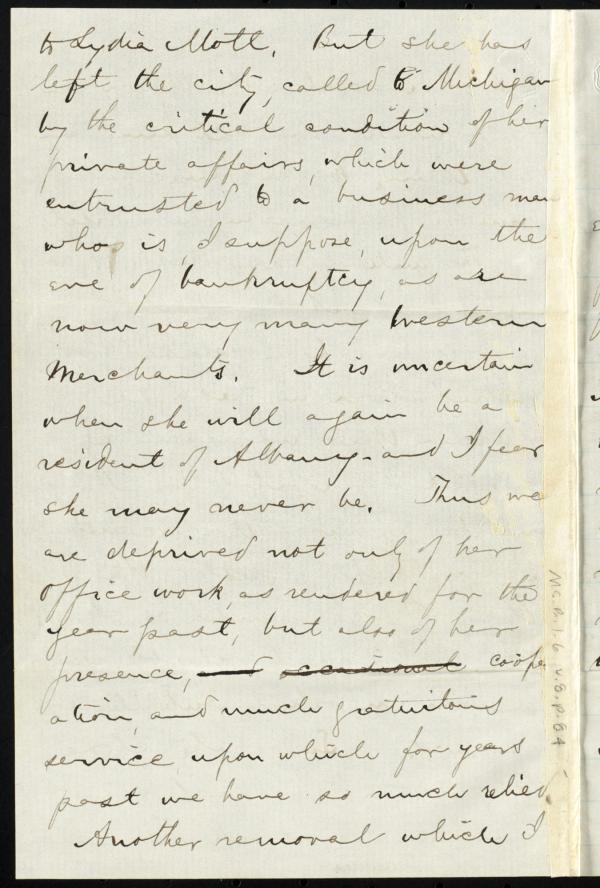 to Lydia Mott. But she has
left the city, called to Michigan
by the critical condition of her
private affairs, which were
entrusted to a business man
who is, I suppose, upon the
eve of bankruptcy, as are
now very many Western
Merchants. It is uncertain
when she will again be a
resident of Albany - and I fear
she may never be. Thus we
are deprived not only of her
office work, as rendered for the
year past, but also of her
presence, and occasional coöper
ation, and much gratuitous
service upon which for years
past we have so much relied
Another removal which I
Ms.B.1.6 v.8, p.84